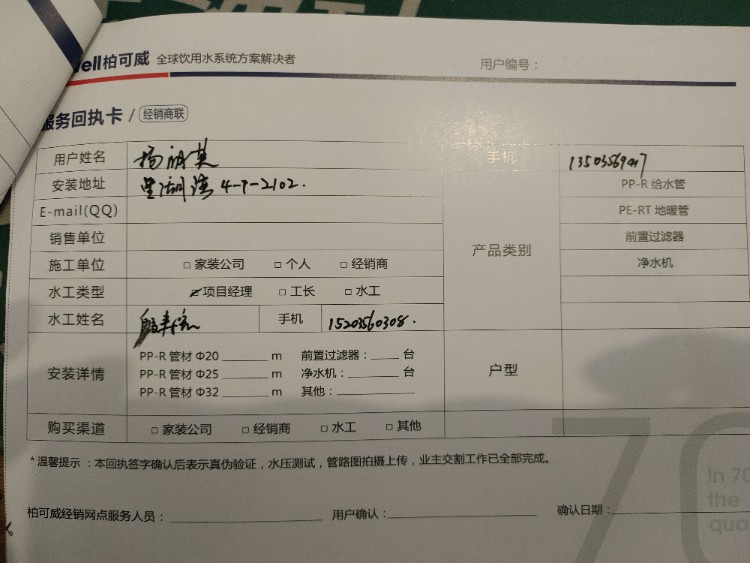 ell柏可威 全球饮用水系统方案解决者 用户编号：
服务回执卡 / 经销商联
用户姓名 杨丽英 手机
安装地址 4-7-2102. PP-R 给水管
E-mail(QQ) PE-RT 地暖管
销售单位 产品类别 前置过滤器
施工单位 □ 家装公司 □ 个人 □ 经销商 净水机
水工类型 项目经理 □ 工长 □ 水工
水工姓名 手机 15203560308.
安装详情 PP-R 管材 Φ20 ______ m 前置过滤器：____ 台 户型
PP-R 管材 Φ25 ______ m 净水机：______ 台
PP-R 管材 Φ32 ______ m 其他：__________
购买渠道 □ 家装公司 □ 经销商 □ 水工 □ 其他
* 温馨提示：本回执签字确认后表示真伪验证，水压测试，管路图拍摄上传，业主交割工作已全部完成。
柏可威经销网点服务人员：__________ 用户确认：__________ 确认日期：__________
70
In 70
the
quo